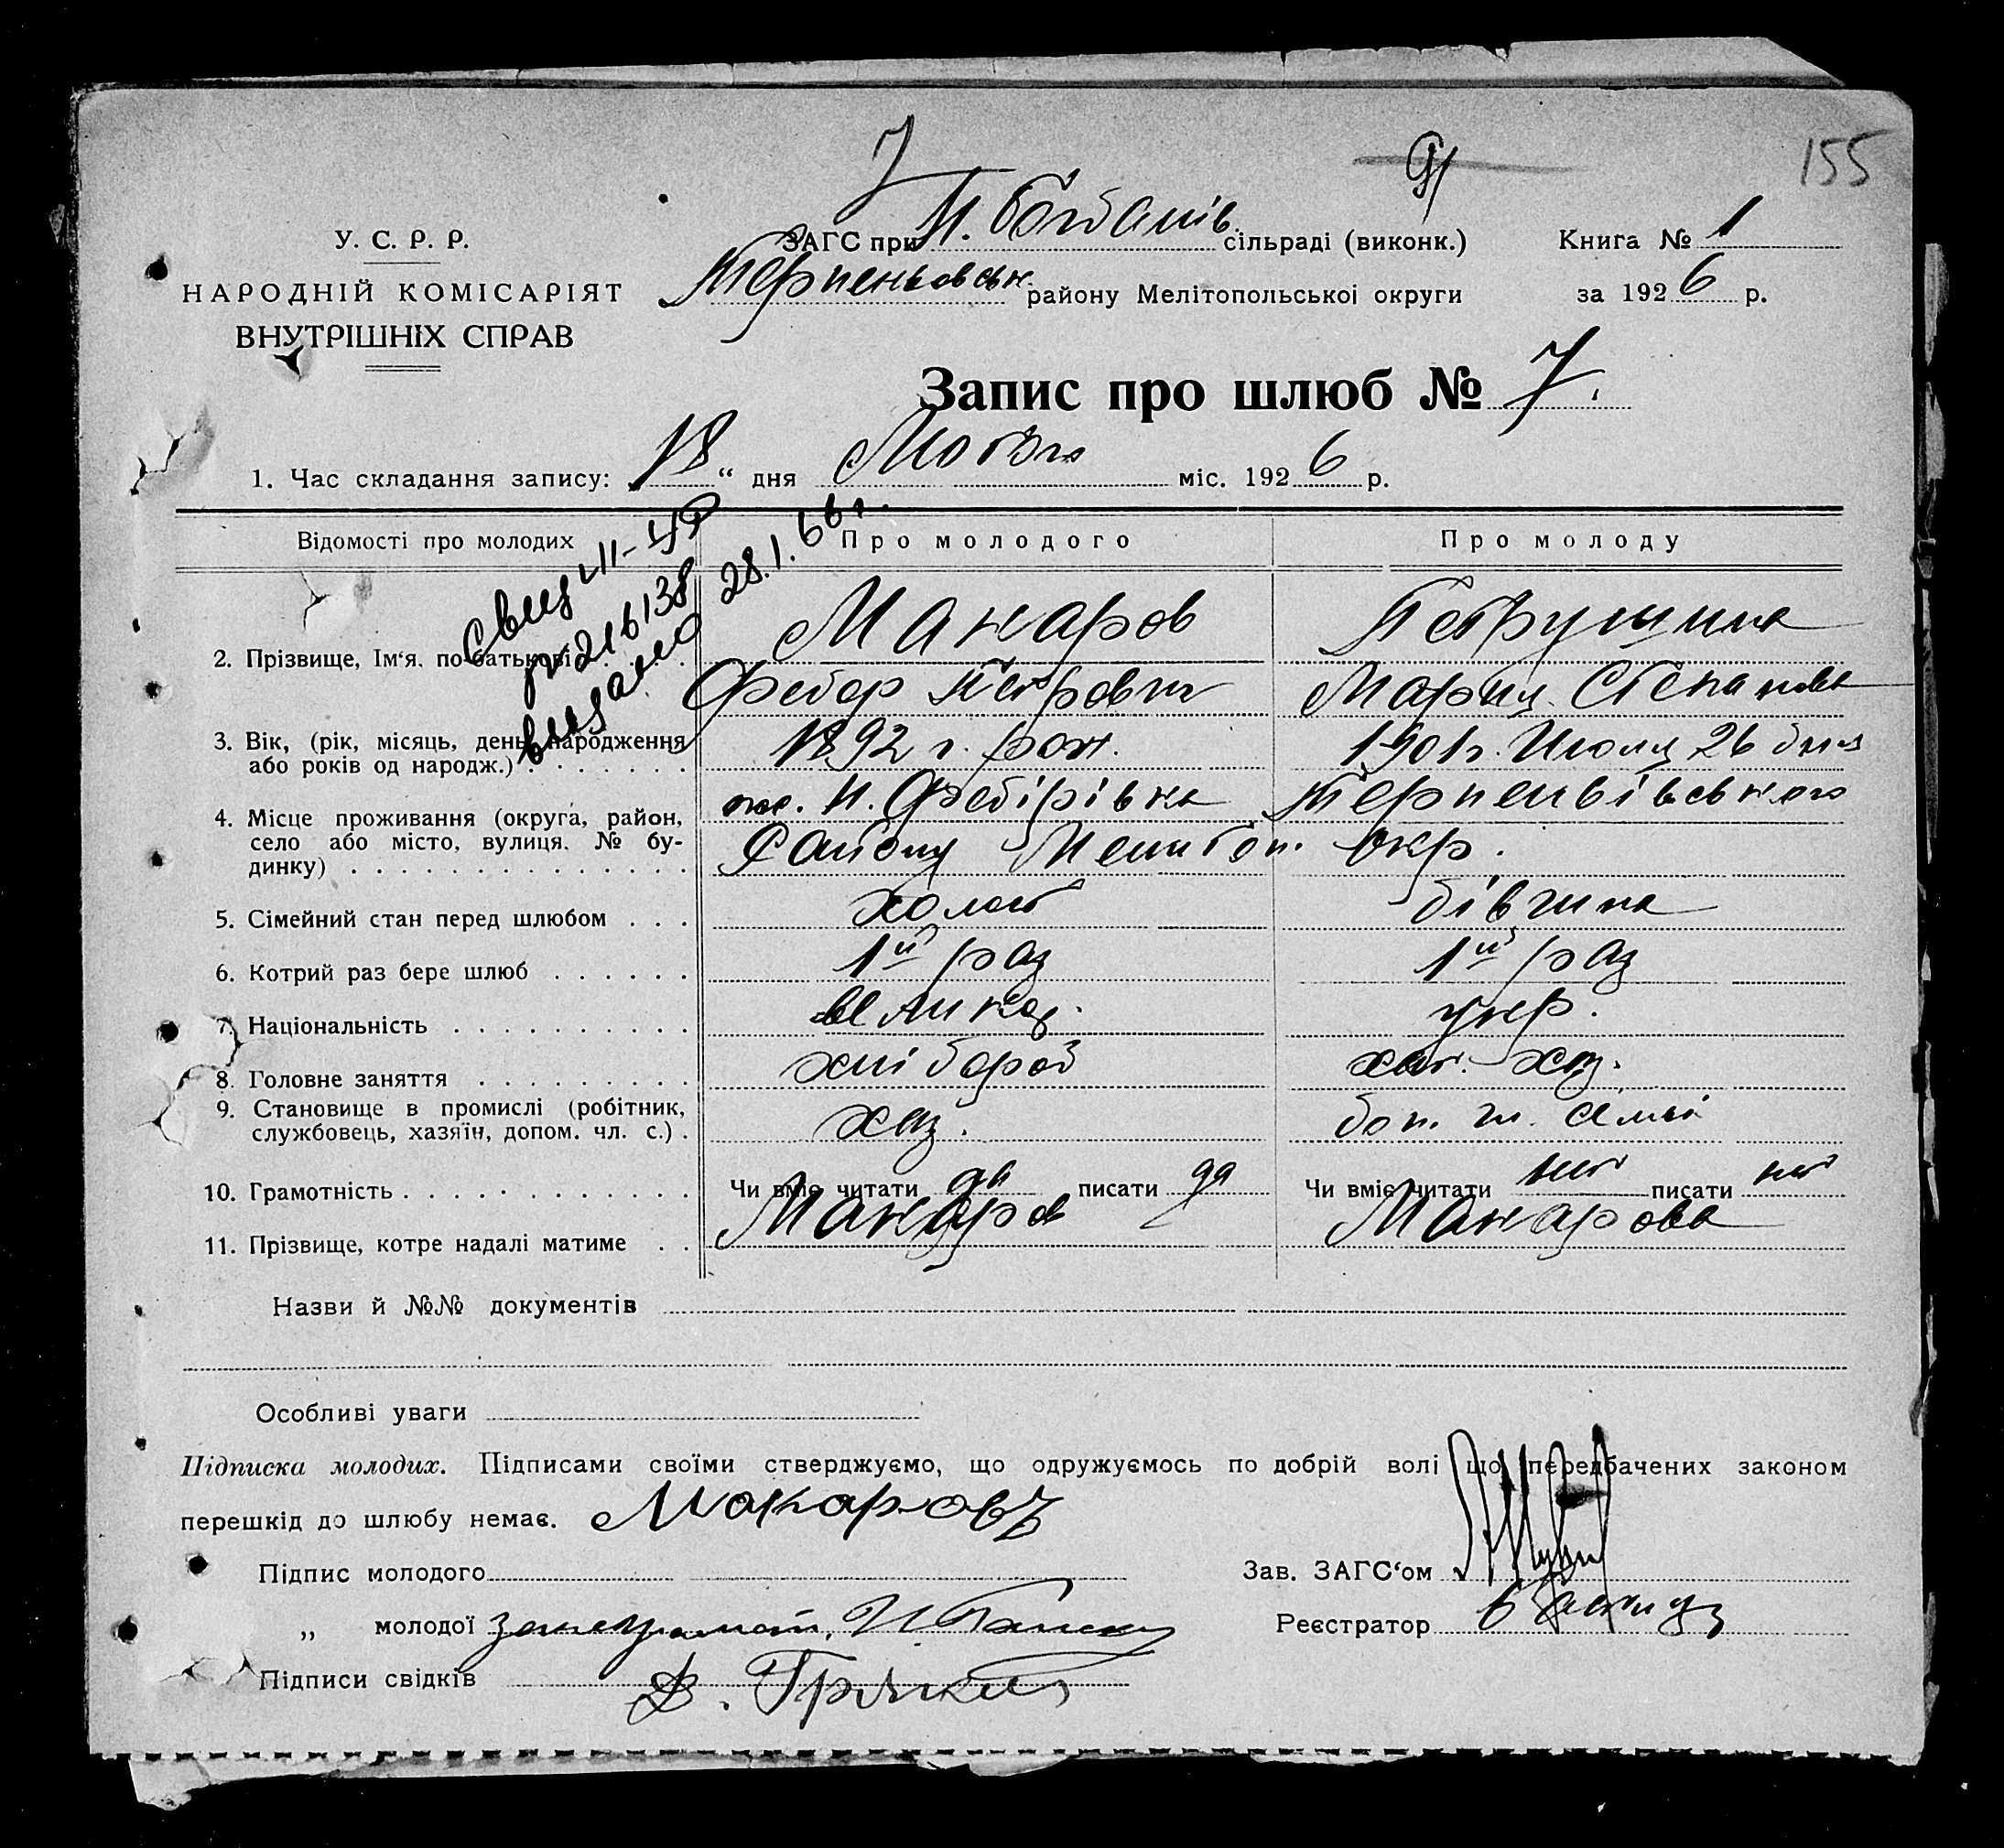 155
7
У. С. Р. Р.
НАРОДНІЙ КОМІСАРІЯТ
ВНУТРІШНІХ СПРАВ
ЗАГС при Н. Богданів. сільраді (виконк.)
Терпеньовськ. району Мелітопольської округи
Книга № 1
за 1926 р.
Запис про шлюб № 7.
1. Час складання запису: 18 “ дня Лютого міс. 1926 р.
Відомості про молодих
Про молодого
Про молоду
216138
28.1.66 г.
2. Прізвище, Ім‘я, по батькові
Макаров
Петрушина
Федор Петрович
Мария Степанова
3. Вік, (рік, місяць, день народження
або років од народж.)
1892 г. рож.
1901 г. Июля 26 дня
4. Місце проживання (округа, район,
село або місто, вулиця, № бу-
динку)
Н. Федірівка Терпеньівського
Району Мелитоп. окр.
5. Сімейний стан перед шлюбом
холост
дівчина
6. Котрий раз бере шлюб
1й раз
1й раз
7. Національність
великор.
укр.
8. Головне заняття
хлібороб
хат. хаз.
9. Становище в промислі (робітник,
службовець, хазяїн, допом. чл. с.)
хаз.
доп. чл. сем'ї
10. Грамотність
Чи вміє читати да писати да
Чи вміє читати нет писати нет
11. Прізвище, котре надалі матиме
Макаров
Макарова
Назви й №№ документів
Особливі уваги
Підписка молодих. Підписами своїми стверджуємо, що одружуємось по добрій волі що передбачених законом
перешкід до шлюбу немає. Макаровъ
Підпис молодого
Зав. ЗАГС‘ом
„ молодої за неграмот.
Реєстратор
Підписи свідків